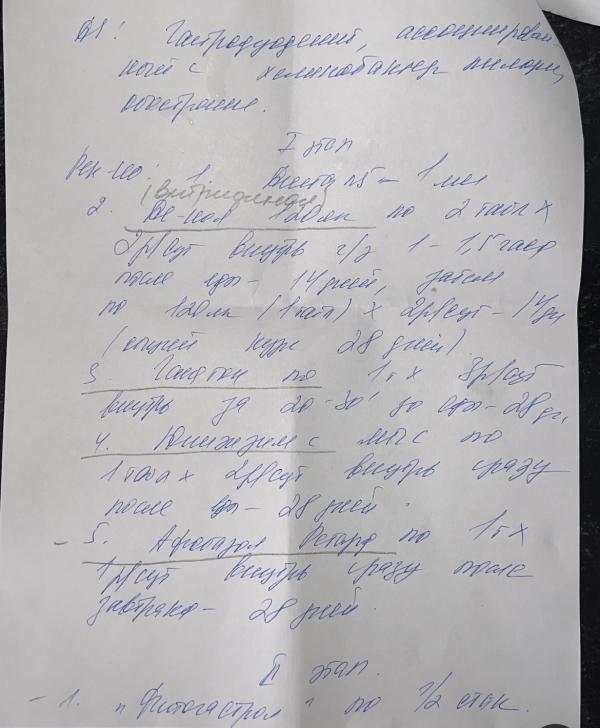 DS: Гастродуоденит, ассоциирован-
ный с хеликобактер пилори,
обострение.
I этап
Рек-но: 1. Диета №5 – 1 мес
(витриолная)
2. Де-нол 120мг по 2 табл х
2р/сут внутрь ч/з 1-1,5 часа
после еды – 14 дней, затем
по 120мг (1 табл) х 2р/сут – 14 дн
(общий курс 28 дней).
3. Ганатон по 1т х 3р/сут
внутрь за 20-30' до еды – 28 дн.
4. Юниэнзим с МПС по
1 таб х 2р/сут внутрь сразу
после еды – 28 дней.
– 5. Афобазол Ретард по 1т х
1р/сут внутрь сразу после
завтрака – 28 дней.
II этап.
– 1. "Фитогастрол" по 1/2 стак.